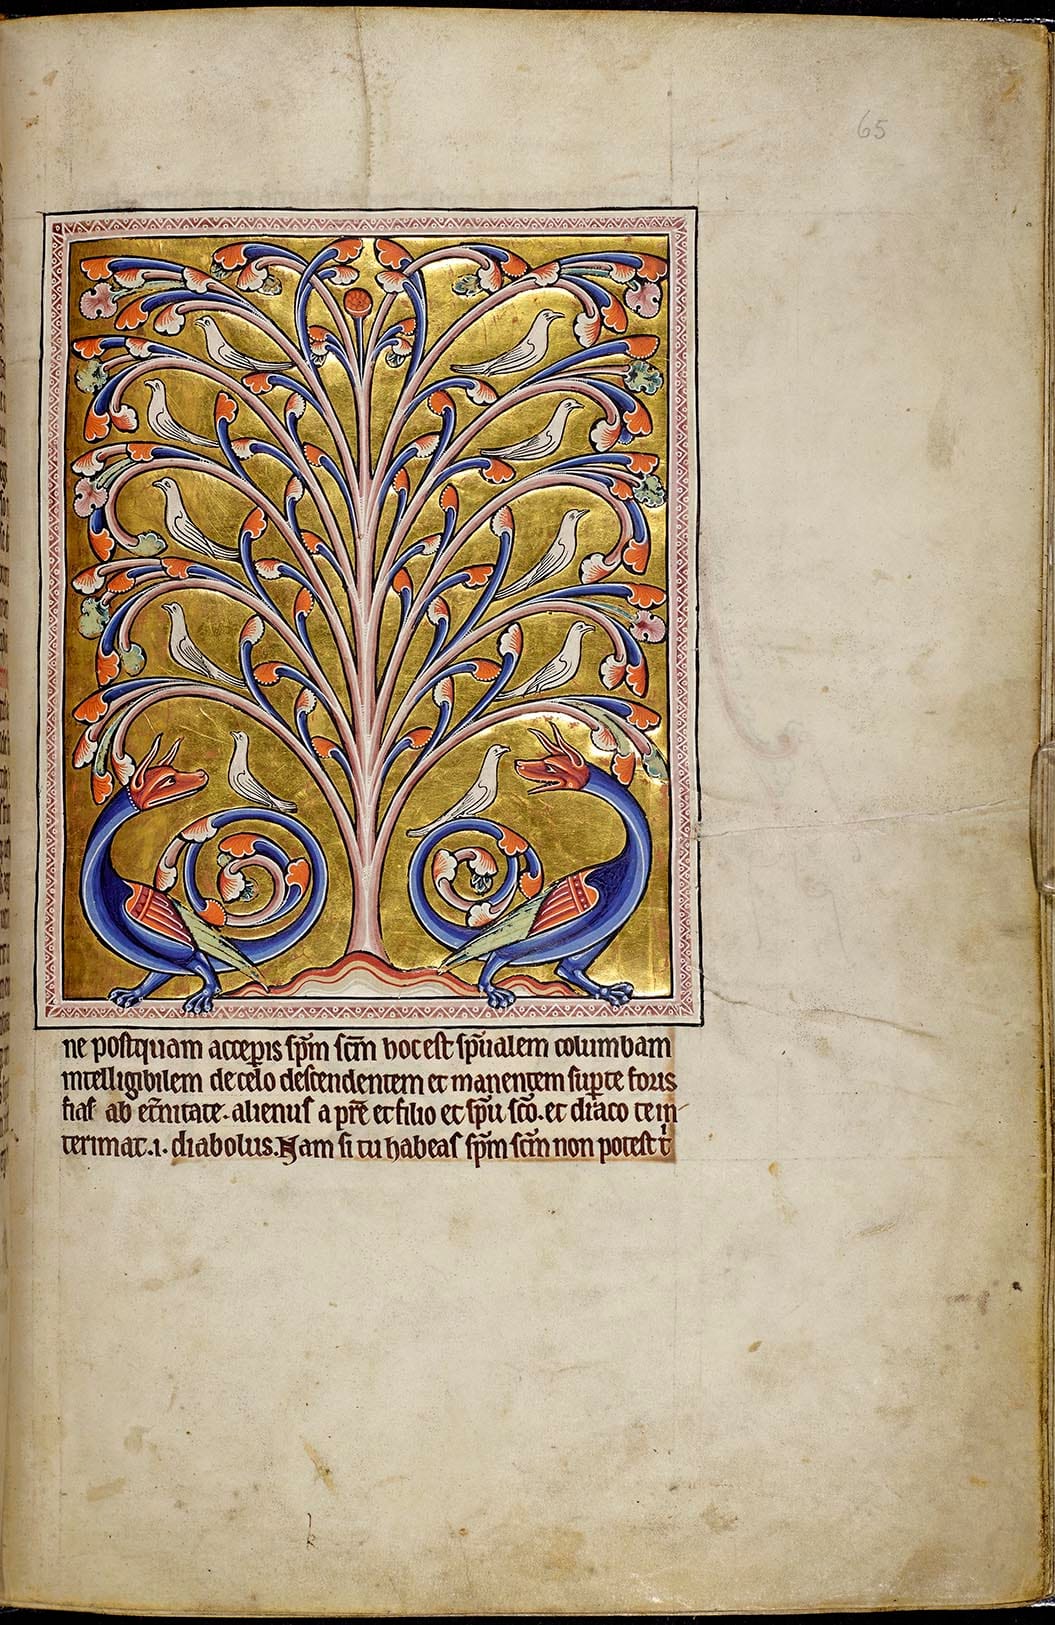 65
ne postquam acceperis sp̄m sc̄m hoc est sp̄ualem columbam
intelligibilem de celo descendentem et manentem sup te foris
fias ab et̄nitate. alienus a pr̄e et filio et sp̄u sc̄o. et draco te in-
terimat .i. diabolus. Nam si tu habeas sp̄m sc̄m non potest t